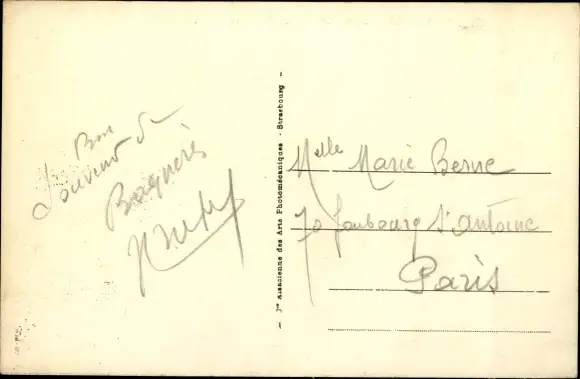 Bon
Souvenir de
Bagnères
Cie Alsacienne des Arts Photomécaniques - Strasbourg
Melle Marie Berne
70 faubourg St Antoine
Paris